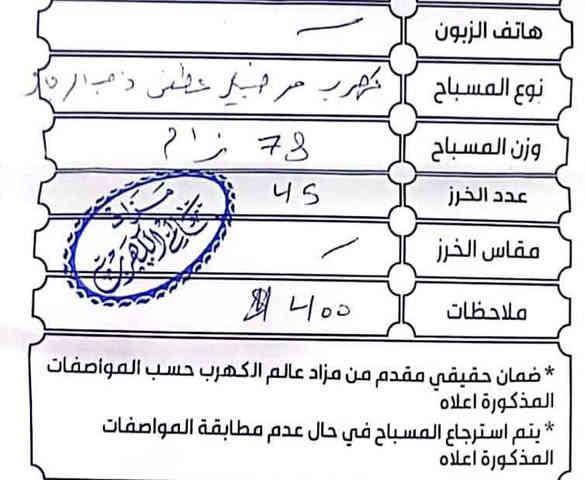 هاتف الزبون
نوع المسباح كهرب
وزن المسباح 78 غرام
عدد الخرز 45
مقاس الخرز
ملاحظات 400 $
* ضمان حقيقي مقدم من مزاد عالم الكهرب حسب المواصفات
المذكورة اعلاه
* يتم استرجاع المسباح في حال عدم مطابقة المواصفات
المذكورة اعلاه